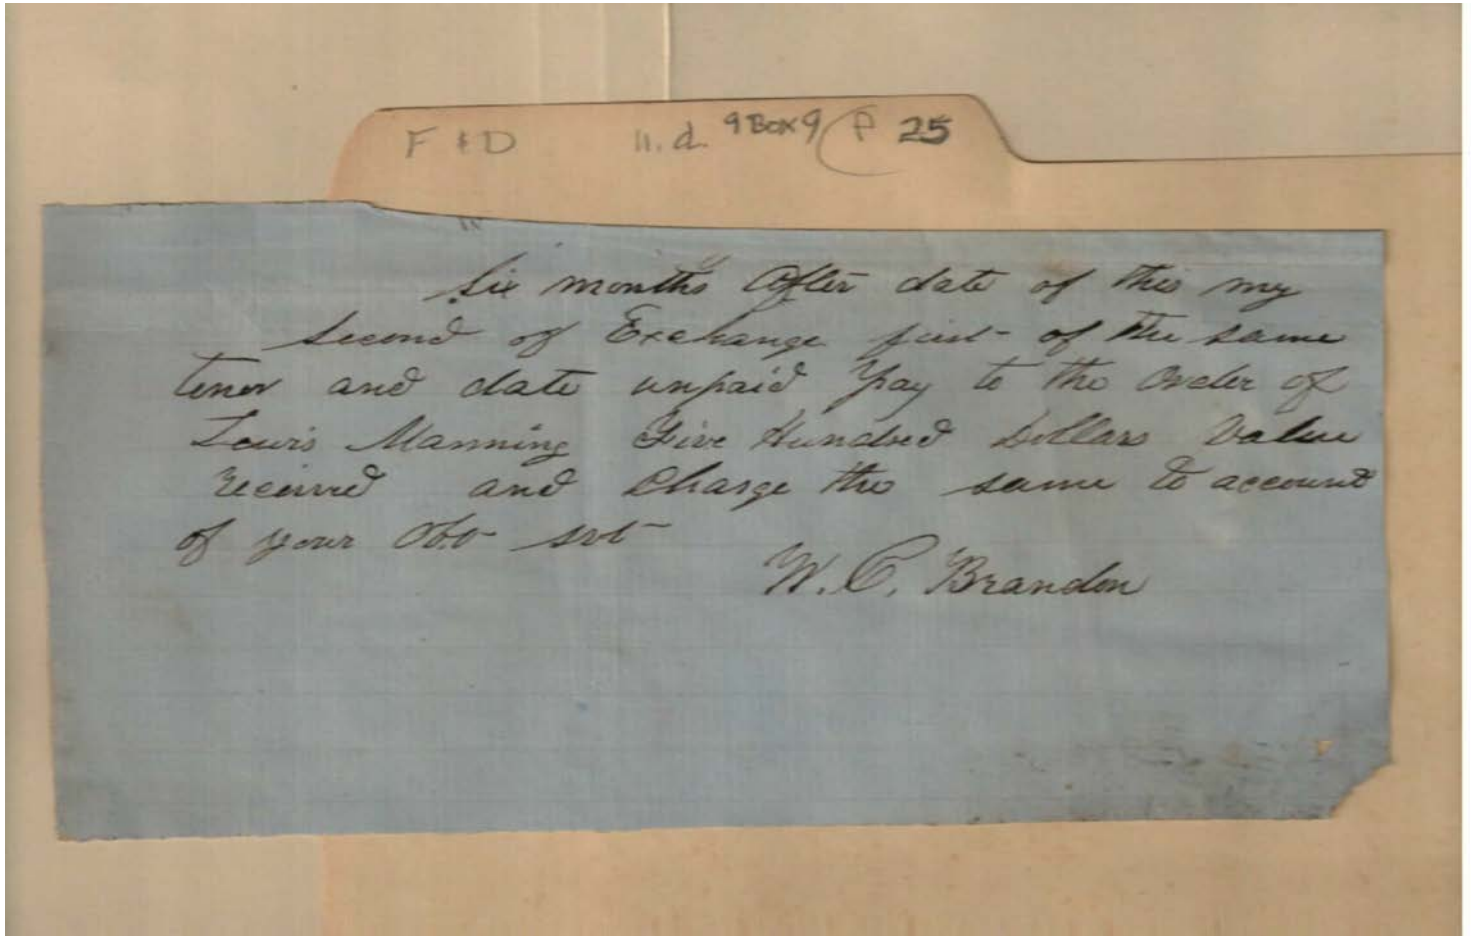 F & D n.d. 9 Box 9 P 25
Six months after date of this my
Second of Exchange first of the same
tenor and date unpaid Pay to the Order of
Lewis Manning Five Hundred Dollars Value
received and Charge the same to account
of your Obt svt
W. C. Brandon